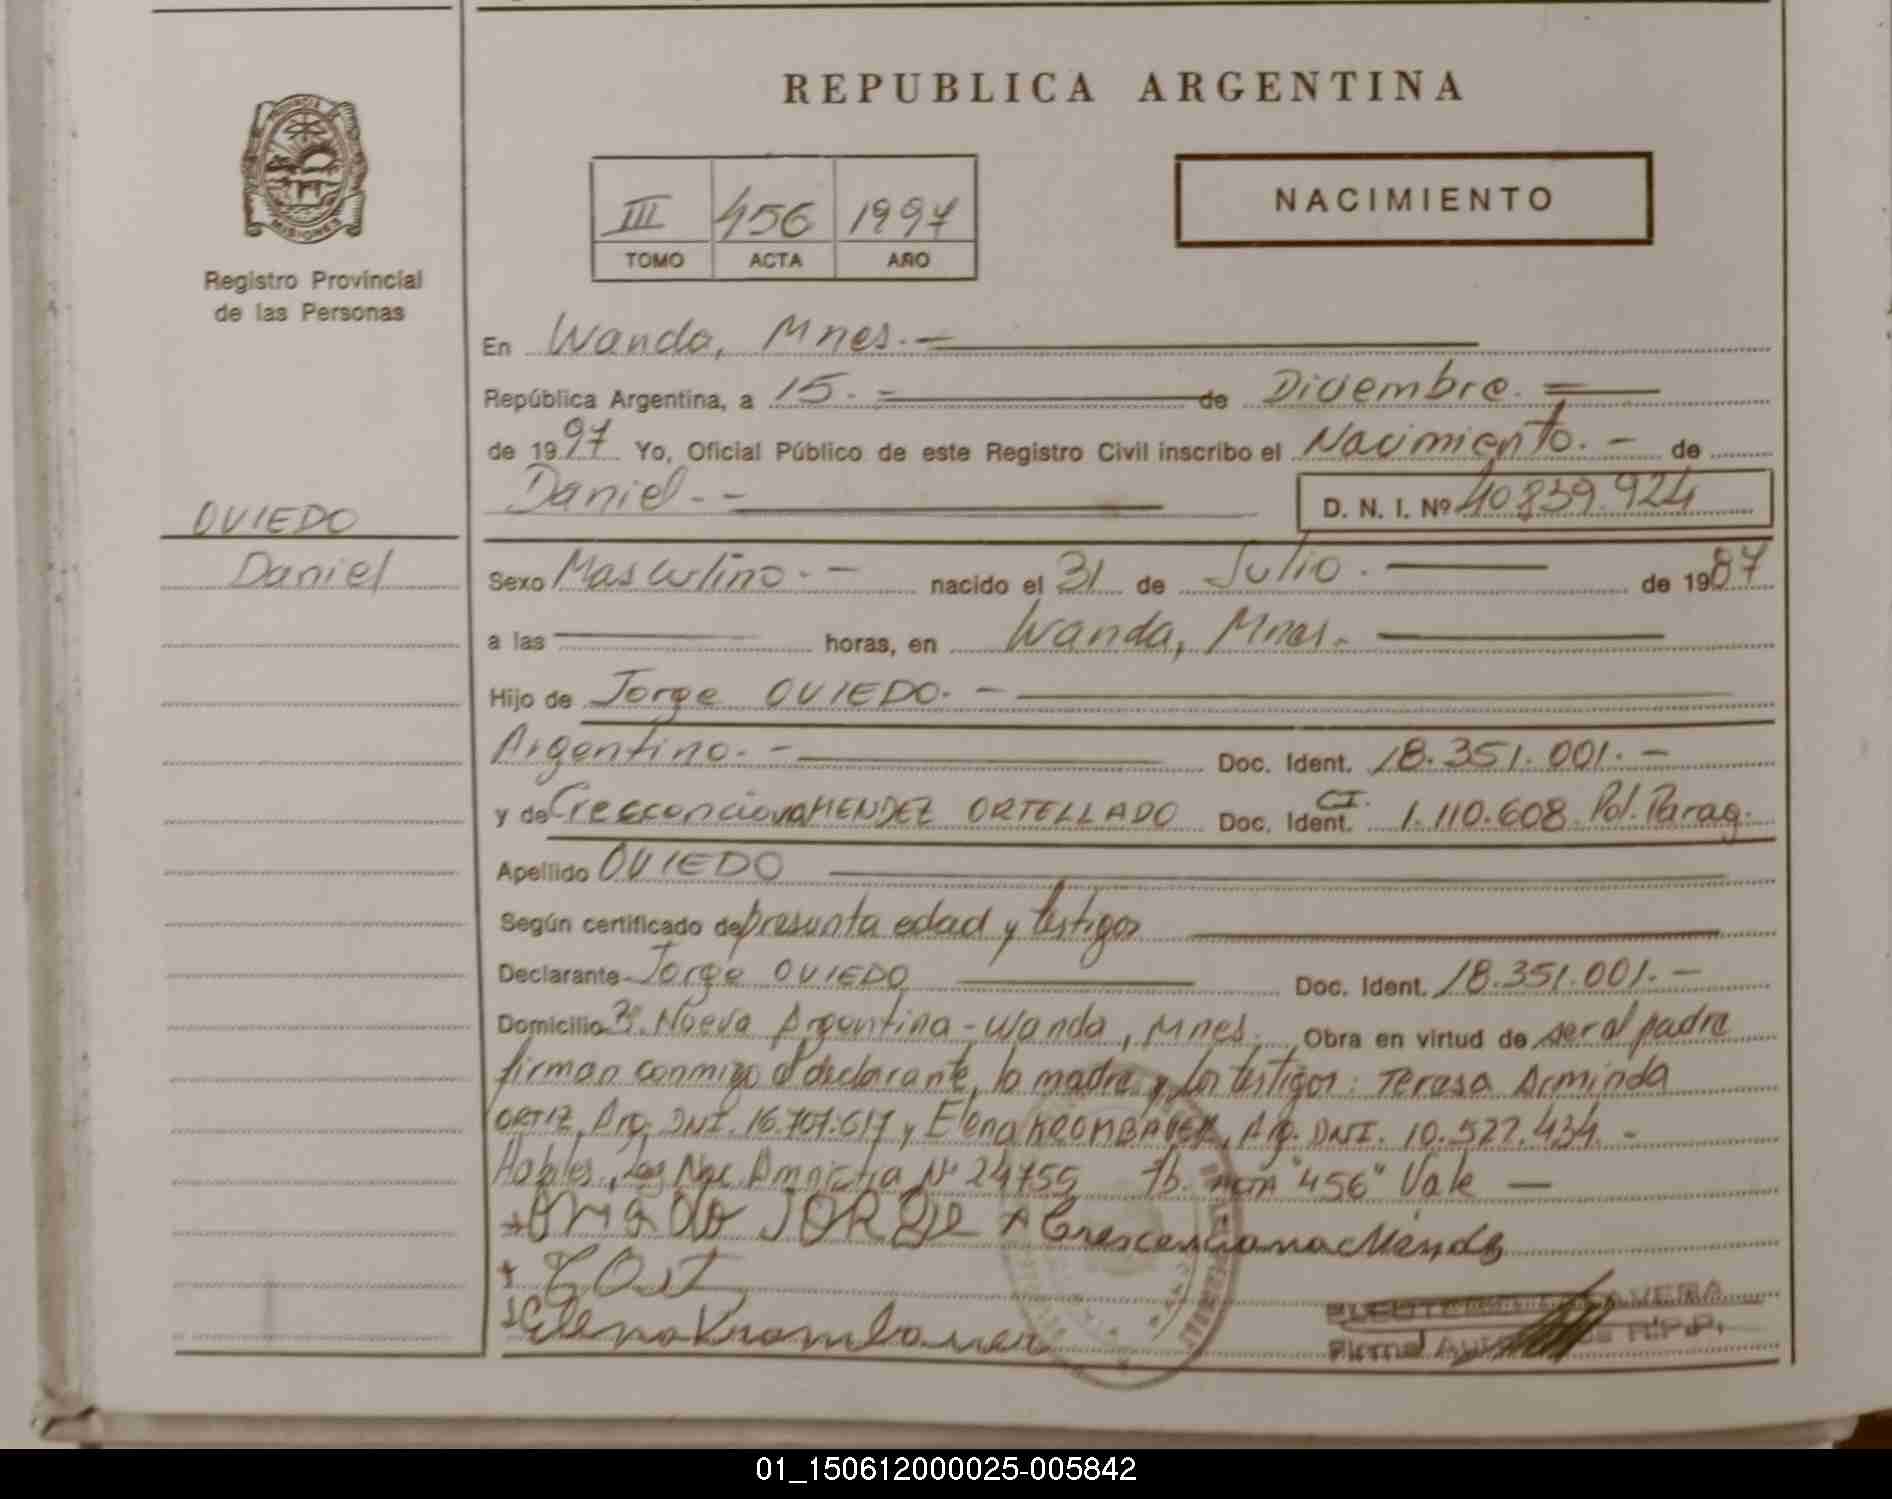 REPUBLICA ARGENTINA
MISIONES
Registro Provincial
de las Personas
III 456 1997
TOMO ACTA AÑO
NACIMIENTO
OVIEDO
Daniel
En Wanda, Mnes. -
República Argentina, a 15. - de Diciembre. -
de 1997 Yo, Oficial Público de este Registro Civil inscribo el Nacimiento. - de
Daniel - - D. N. I. Nº 40839.924
Sexo Masculino. - nacido el 31 de Julio. - de 1987
a las horas, en Wanda, Mnes. -
Hijo de Jorge OVIEDO. -
Argentino. - Doc. Ident. 18.351.001. -
y de MENDEZ ORTELLADO Doc. Ident. CI. 1.110.608 Pol. Parag.
Apellido OVIEDO
Según certificado de presunta edad y testigos
Declarante Jorge OVIEDO Doc. Ident. 18.351.001. -
Domicilio Bº. Nueva Argentina - Wanda, Mnes. Obra en virtud de ser el padre
firman conmigo el declarante, la madre y los testigos: Teresa Arminda
ORTIZ, Arg. DNI. 16.707.617 y Elena KROMBAUER, Arg. DNI. 10.527.434. -
Hábiles. Ley Nac. Amnistia Nº 24755 Tb. ACTA "456" Vale —
JORGE Crescenciana Mendez
Elena Krombauer
01_150612000025-005842